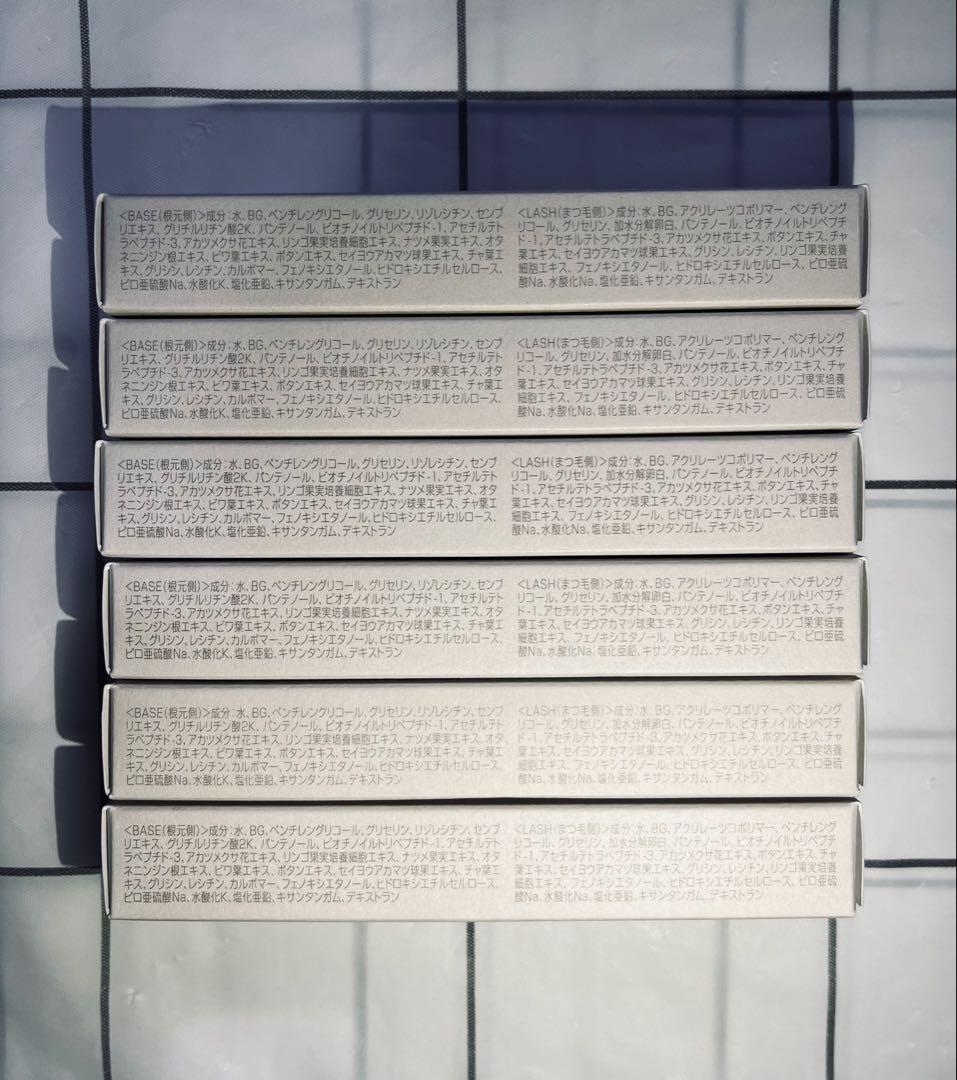 <BASE(根元側)>成分:水、BG、ペンチレングリコール、グリセリン、リゾレシチン、センブ
リエキス、グリチルリチン酸2K、パンテノール、ビオチノイルトリペプチド-1、アセチルテト
ラペプチド-3、アカツメクサ花エキス、リンゴ果実培養細胞エキス、ナツメ果実エキス、オタ
ネニンジン根エキス、ビワ葉エキス、ボタンエキス、セイヨウアカマツ球果エキス、チャ葉エ
キス、グリシン、レシチン、カルボマー、フェノキシエタノール、ヒドロキシエチルセルロース、
ピロ亜硫酸Na、水酸化K、塩化亜鉛、キサンタンガム、デキストラン
<LASH(まつ毛側)>成分:水、BG、アクリレーツコポリマー、ペンチレング
リコール、グリセリン、加水分解卵白、パンテノール、ビオチノイルトリペプチ
ド-1、アセチルテトラペプチド-3、アカツメクサ花エキス、ボタンエキス、チャ
葉エキス、セイヨウアカマツ球果エキス、グリシン、レシチン、リンゴ果実培養
細胞エキス、フェノキシエタノール、ヒドロキシエチルセルロース、ピロ亜硫
酸Na、水酸化Na、塩化亜鉛、キサンタンガム、デキストラン
<BASE(根元側)>成分:水、BG、ペンチレングリコール、グリセリン、リゾレシチン、センブ
リエキス、グリチルリチン酸2K、パンテノール、ビオチノイルトリペプチド-1、アセチルテト
ラペプチド-3、アカツメクサ花エキス、リンゴ果実培養細胞エキス、ナツメ果実エキス、オタ
ネニンジン根エキス、ビワ葉エキス、ボタンエキス、セイヨウアカマツ球果エキス、チャ葉エ
キス、グリシン、レシチン、カルボマー、フェノキシエタノール、ヒドロキシエチルセルロース、
ピロ亜硫酸Na、水酸化K、塩化亜鉛、キサンタンガム、デキストラン
<LASH(まつ毛側)>成分:水、BG、アクリレーツコポリマー、ペンチレング
リコール、グリセリン、加水分解卵白、パンテノール、ビオチノイルトリペプチ
ド-1、アセチルテトラペプチド-3、アカツメクサ花エキス、ボタンエキス、チャ
葉エキス、セイヨウアカマツ球果エキス、グリシン、レシチン、リンゴ果実培養
細胞エキス、フェノキシエタノール、ヒドロキシエチルセルロース、ピロ亜硫
酸Na、水酸化Na、塩化亜鉛、キサンタンガム、デキストラン
<BASE(根元側)>成分:水、BG、ペンチレングリコール、グリセリン、リゾレシチン、センブ
リエキス、グリチルリチン酸2K、パンテノール、ビオチノイルトリペプチド-1、アセチルテト
ラペプチド-3、アカツメクサ花エキス、リンゴ果実培養細胞エキス、ナツメ果実エキス、オタ
ネニンジン根エキス、ビワ葉エキス、ボタンエキス、セイヨウアカマツ球果エキス、チャ葉エ
キス、グリシン、レシチン、カルボマー、フェノキシエタノール、ヒドロキシエチルセルロース、
ピロ亜硫酸Na、水酸化K、塩化亜鉛、キサンタンガム、デキストラン
<LASH(まつ毛側)>成分:水、BG、アクリレーツコポリマー、ペンチレング
リコール、グリセリン、加水分解卵白、パンテノール、ビオチノイルトリペプチ
ド-1、アセチルテトラペプチド-3、アカツメクサ花エキス、ボタンエキス、チャ
葉エキス、セイヨウアカマツ球果エキス、グリシン、レシチン、リンゴ果実培養
細胞エキス、フェノキシエタノール、ヒドロキシエチルセルロース、ピロ亜硫
酸Na、水酸化Na、塩化亜鉛、キサンタンガム、デキストラン
<BASE(根元側)>成分:水、BG、ペンチレングリコール、グリセリン、リゾレシチン、センブ
リエキス、グリチルリチン酸2K、パンテノール、ビオチノイルトリペプチド-1、アセチルテト
ラペプチド-3、アカツメクサ花エキス、リンゴ果実培養細胞エキス、ナツメ果実エキス、オタ
ネニンジン根エキス、ビワ葉エキス、ボタンエキス、セイヨウアカマツ球果エキス、チャ葉エ
キス、グリシン、レシチン、カルボマー、フェノキシエタノール、ヒドロキシエチルセルロース、
ピロ亜硫酸Na、水酸化K、塩化亜鉛、キサンタンガム、デキストラン
<LASH(まつ毛側)>成分:水、BG、アクリレーツコポリマー、ペンチレング
リコール、グリセリン、加水分解卵白、パンテノール、ビオチノイルトリペプチ
ド-1、アセチルテトラペプチド-3、アカツメクサ花エキス、ボタンエキス、チャ
葉エキス、セイヨウアカマツ球果エキス、グリシン、レシチン、リンゴ果実培養
細胞エキス、フェノキシエタノール、ヒドロキシエチルセルロース、ピロ亜硫
酸Na、水酸化Na、塩化亜鉛、キサンタンガム、デキストラン
<BASE(根元側)>成分:水、BG、ペンチレングリコール、グリセリン、リゾレシチン、センブ
リエキス、グリチルリチン酸2K、パンテノール、ビオチノイルトリペプチド-1、アセチルテト
ラペプチド-3、アカツメクサ花エキス、リンゴ果実培養細胞エキス、ナツメ果実エキス、オタ
ネニンジン根エキス、ビワ葉エキス、ボタンエキス、セイヨウアカマツ球果エキス、チャ葉エ
キス、グリシン、レシチン、カルボマー、フェノキシエタノール、ヒドロキシエチルセルロース、
ピロ亜硫酸Na、水酸化K、塩化亜鉛、キサンタンガム、デキストラン
<LASH(まつ毛側)>成分:水、BG、アクリレーツコポリマー、ペンチレング
リコール、グリセリン、加水分解卵白、パンテノール、ビオチノイルトリペプチ
ド-1、アセチルテトラペプチド-3、アカツメクサ花エキス、ボタンエキス、チャ
葉エキス、セイヨウアカマツ球果エキス、グリシン、レシチン、リンゴ果実培養
細胞エキス、フェノキシエタノール、ヒドロキシエチルセルロース、ピロ亜硫
酸Na、水酸化Na、塩化亜鉛、キサンタンガム、デキストラン
<BASE(根元側)>成分:水、BG、ペンチレングリコール、グリセリン、リゾレシチン、センブ
リエキス、グリチルリチン酸2K、パンテノール、ビオチノイルトリペプチド-1、アセチルテト
ラペプチド-3、アカツメクサ花エキス、リンゴ果実培養細胞エキス、ナツメ果実エキス、オタ
ネニンジン根エキス、ビワ葉エキス、ボタンエキス、セイヨウアカマツ球果エキス、チャ葉エ
キス、グリシン、レシチン、カルボマー、フェノキシエタノール、ヒドロキシエチルセルロース、
ピロ亜硫酸Na、水酸化K、塩化亜鉛、キサンタンガム、デキストラン
<LASH(まつ毛側)>成分:水、BG、アクリレーツコポリマー、ペンチレング
リコール、グリセリン、加水分解卵白、パンテノール、ビオチノイルトリペプチ
ド-1、アセチルテトラペプチド-3、アカツメクサ花エキス、ボタンエキス、チャ
葉エキス、セイヨウアカマツ球果エキス、グリシン、レシチン、リンゴ果実培養
細胞エキス、フェノキシエタノール、ヒドロキシエチルセルロース、ピロ亜硫
酸Na、水酸化Na、塩化亜鉛、キサンタンガム、デキストラン